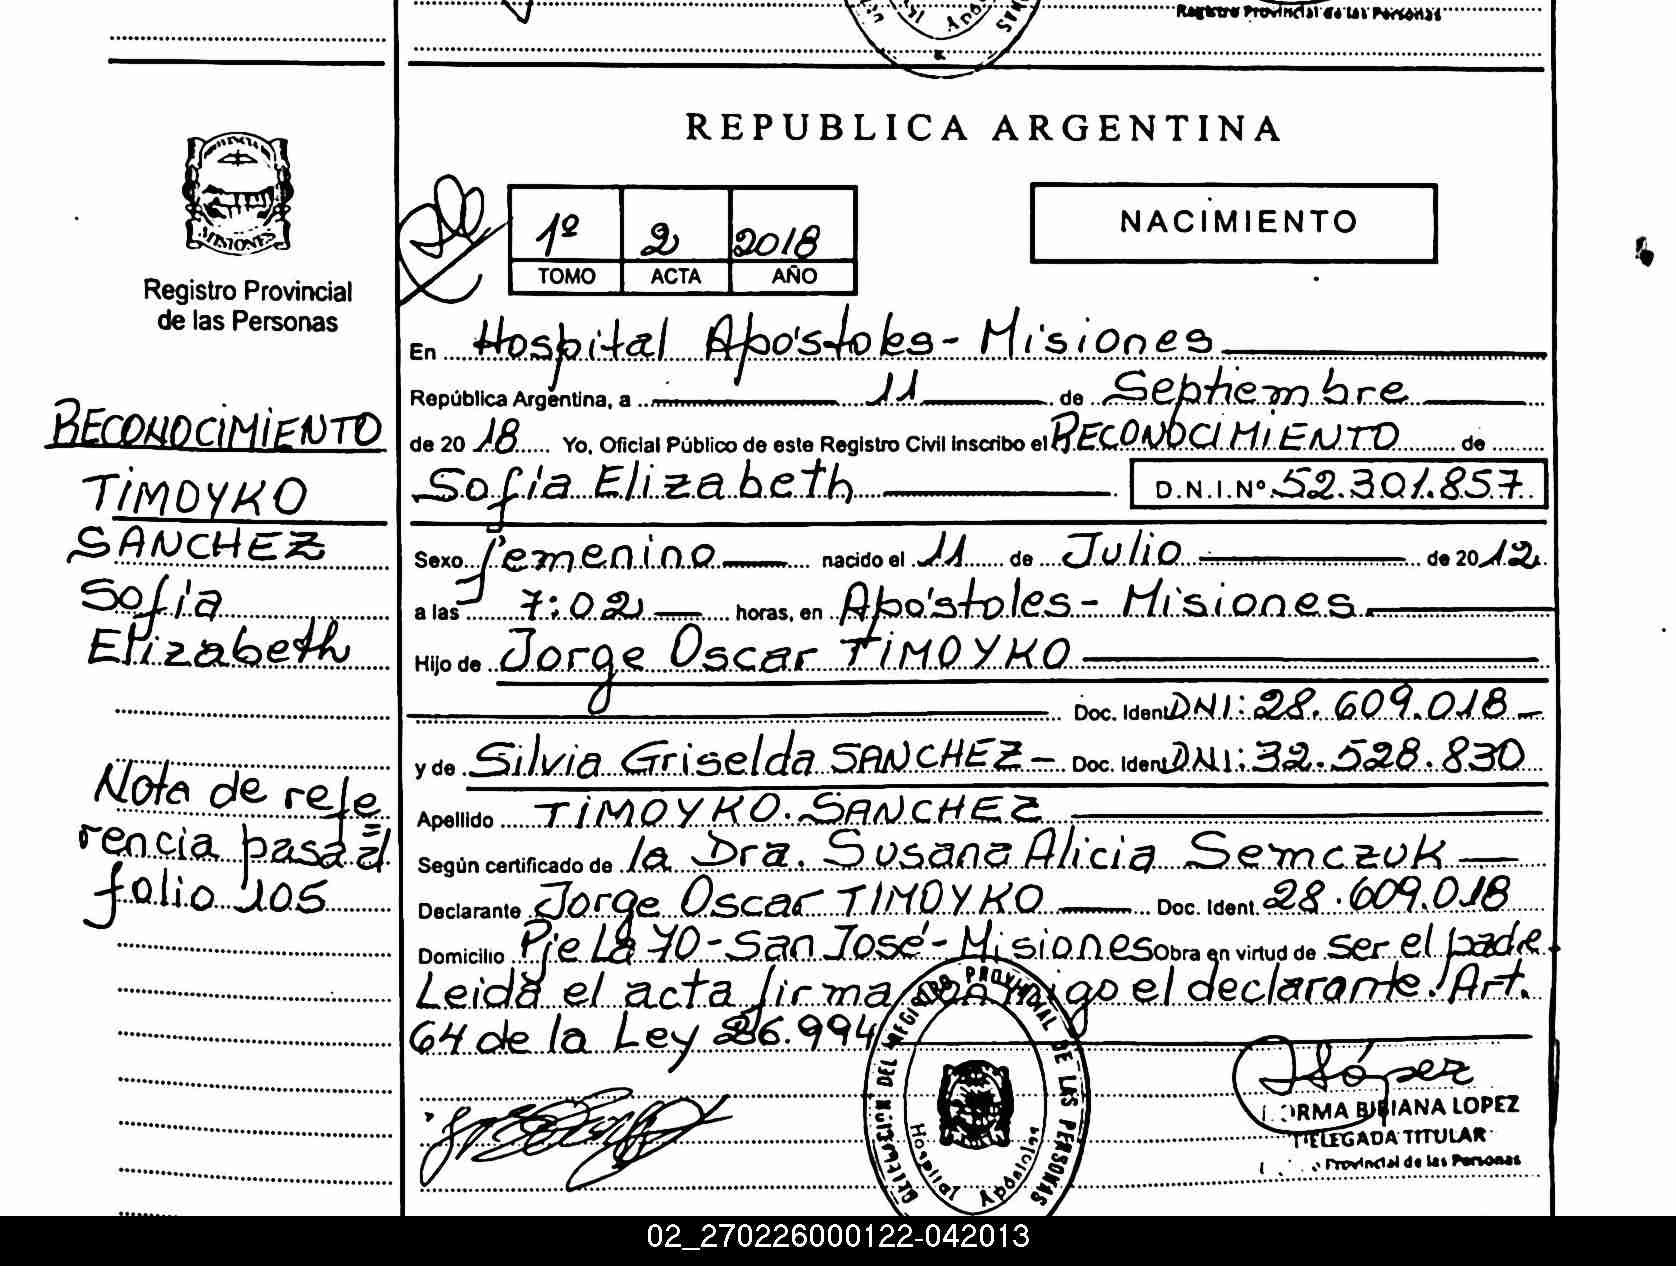 Registro Provincial de las Personas
REPUBLICA ARGENTINA
MISIONES
Registro Provincial
de las Personas
1º 2 2018
TOMO ACTA AÑO
NACIMIENTO
En Hospital Apóstoles - Misiones
República Argentina, a 11 de Septiembre
de 2018 Yo, Oficial Público de este Registro Civil inscribo el RECONOCIMIENTO de
Sofía Elizabeth D.N.I.Nº 52.301.857
Sexo femenino nacido el 11 de Julio de 2012
a las 7:02 horas, en Apóstoles - Misiones
Hijo de Jorge Oscar TIMOYKO
Doc. Ident DNI: 28.609.018
y de Silvia Griselda SANCHEZ - Doc. Ident DNI: 32.528.830
Apellido TIMOYKO SANCHEZ
Según certificado de la Dra. Susana Alicia Semczuk
Declarante Jorge Oscar TIMOYKO Doc. Ident. 28.609.018
Domicilio Pje La 70 - San José - Misiones Obra en virtud de ser el padre
Leida el acta firma conmigo el declarante. Art.
64 de la Ley 26.994
RECONOCIMIENTO
TIMOYKO
SANCHEZ
Sofía
Elizabeth
Nota de refe
rencia pasa al
folio 105
DELEGACION DEL REGISTRO PROVINCIAL DE LAS PERSONAS
Hospital Apóstoles
López
NORMA BIBIANA LOPEZ
DELEGADA TITULAR
Provincial de las Personas
02_270226000122-042013